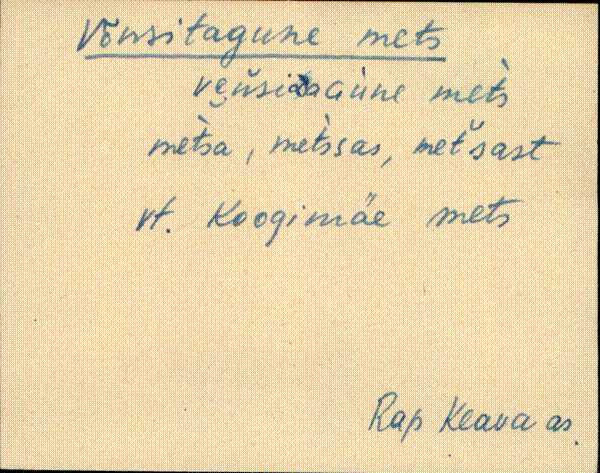 Võnsitagune mets
ve̮ǹsiDaGùne mèts
mètsa, mètsas, metsast
vt. Koogimäe mets
Rap Keava as.